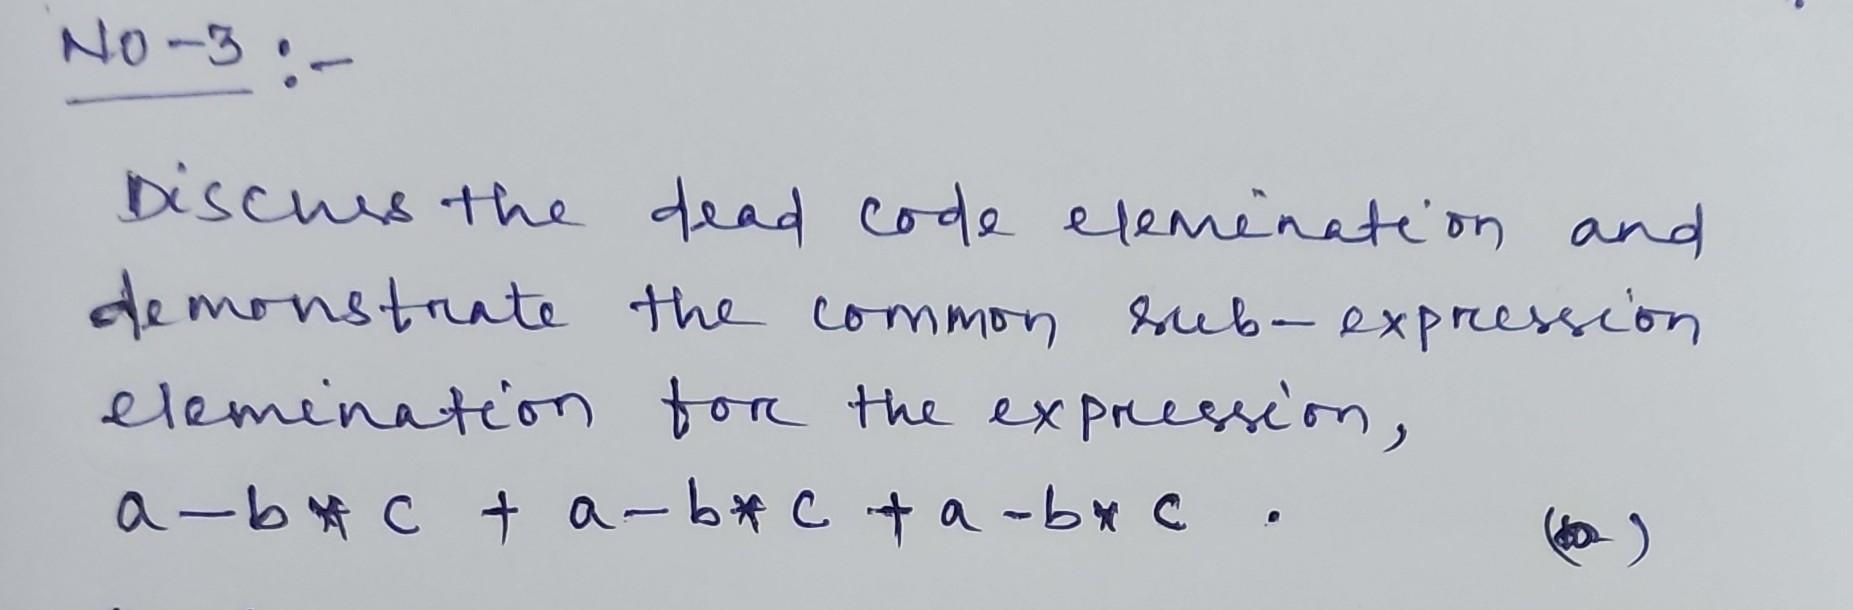 NO-3:-
Discuss the dead code elemination and
demonstrate the common sub-expression
elemination for the expression,
a-b*c + a-b*c + a-b*c .